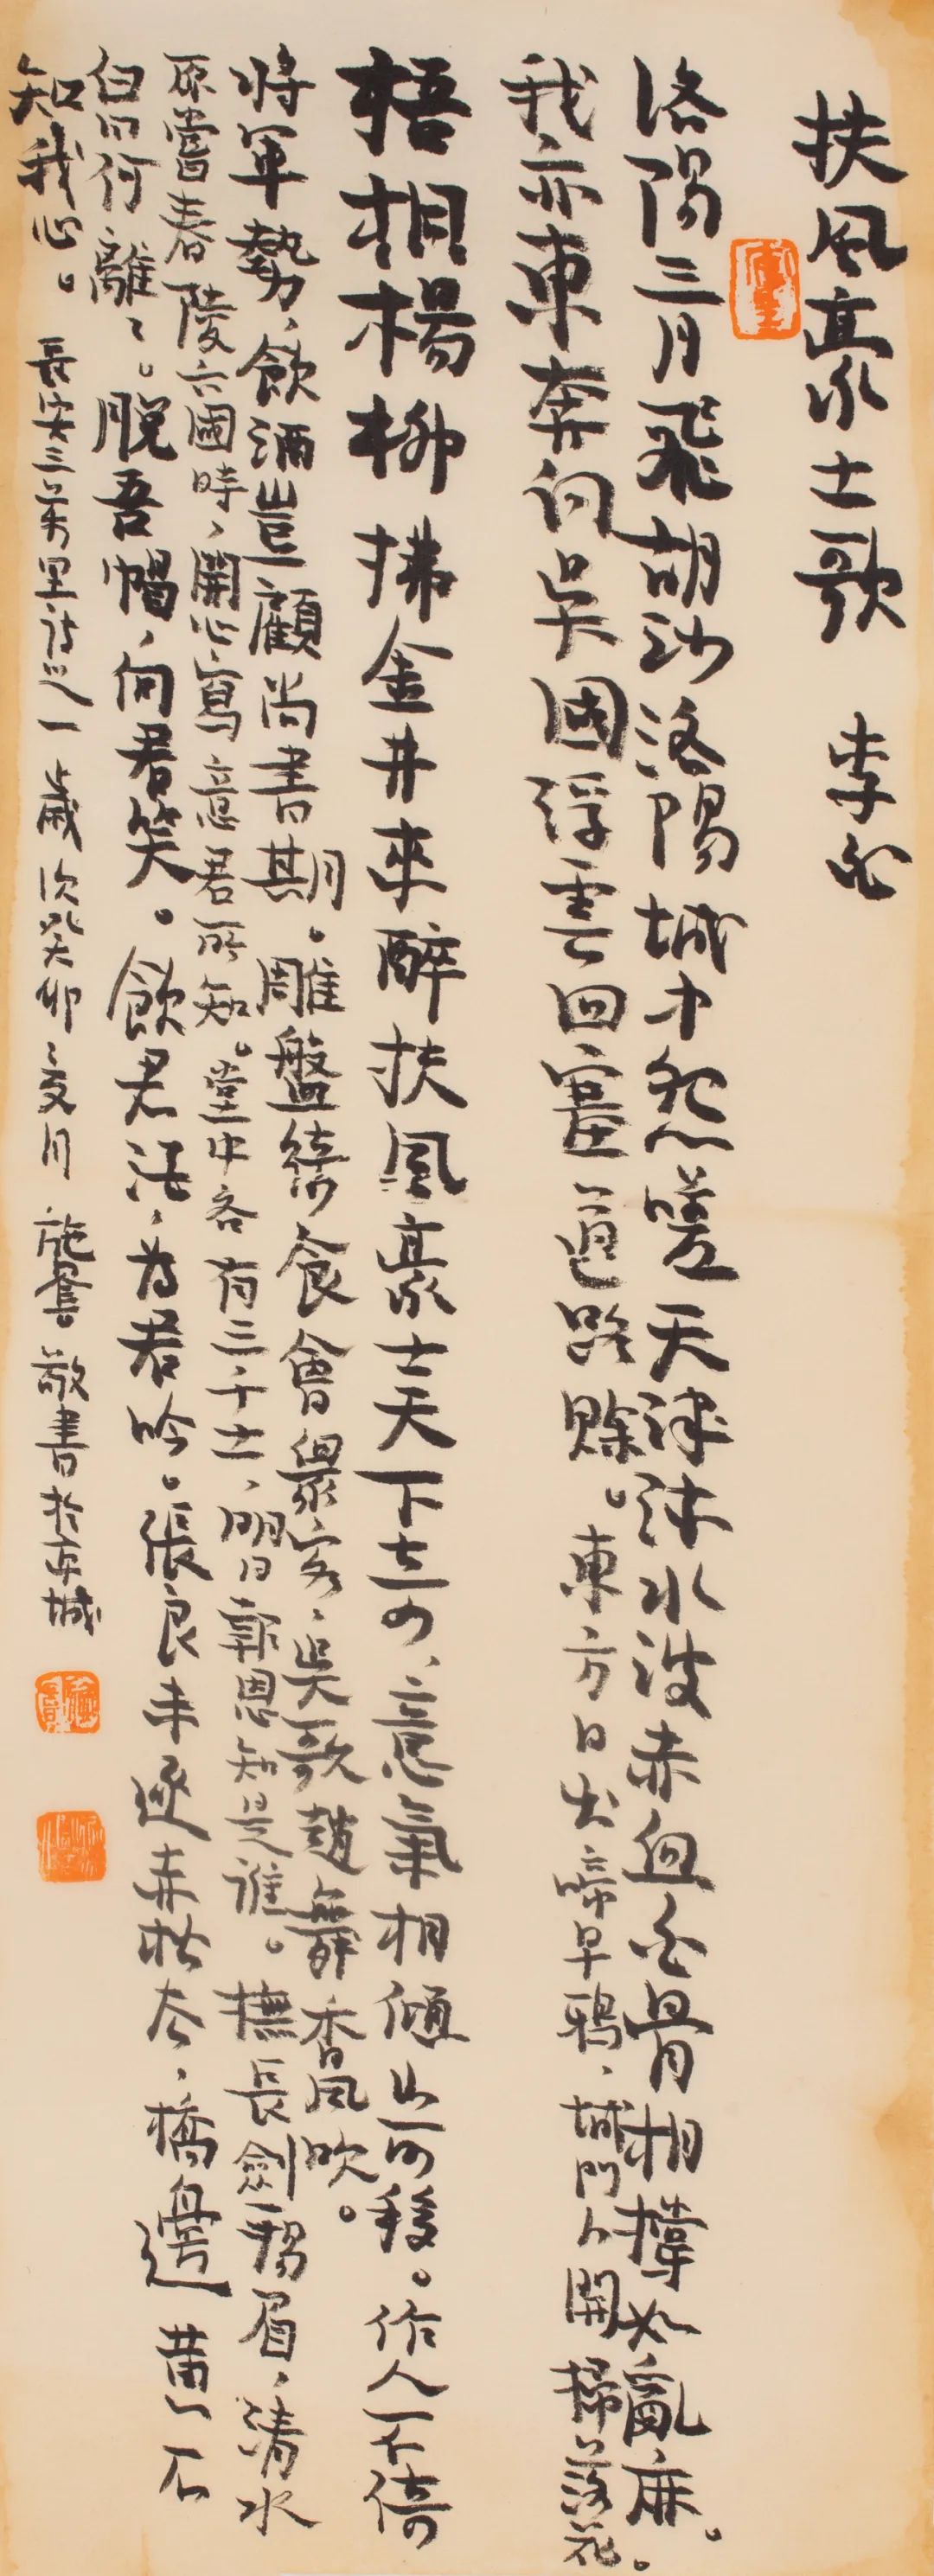 扶風豪士歌 李白
洛陽三月飛胡沙洛陽城中怨嗟天津沐水波赤血白骨相撐如亂麻。
我亦東奔向吳國浮雲四塞道路賒。東方日出啼早鴉、城門人開掃落花。
梧桐楊柳拂金井來醉扶風豪士天下奇、意氣相傾山可移。作人不倚
將軍勢、飲酒豈顧尚書期。雕盤綺食會眾客、吳歌趙舞香風吹。
原嘗春陵六國時、開心寫意君所知。堂中各有三千士、明日報恩知是誰。撫長劍一揚眉、清水
白石何離離。脫吾帽、向君笑。飲君酒、為君吟。張良未逐赤松去、橋邊黃石
知我心。 長安三萬里詩之一 歲次癸卯夏月 施 敬書於京城